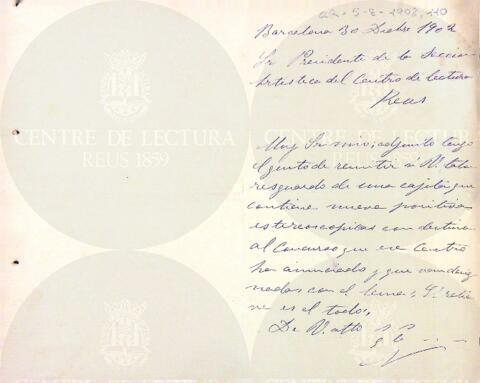 CR-5-8-1902, 110
Barcelona 30 Dicbre 1902
Sr Presidente de la Seccion
Artistica del Centro de Lectura
Reus
Muy Sr mio; adjunto tengo
el gusto de remitir á V.
resguardo de una cajita que
contiene nueve positivas
estereoscopicas con destino
al Concurso que ese Centro
ha anunciado y que van desig
nadas con el lema:
ne es el todo,
De V. atto S. S.
CENTRE DE LECTURA
REUS 1859